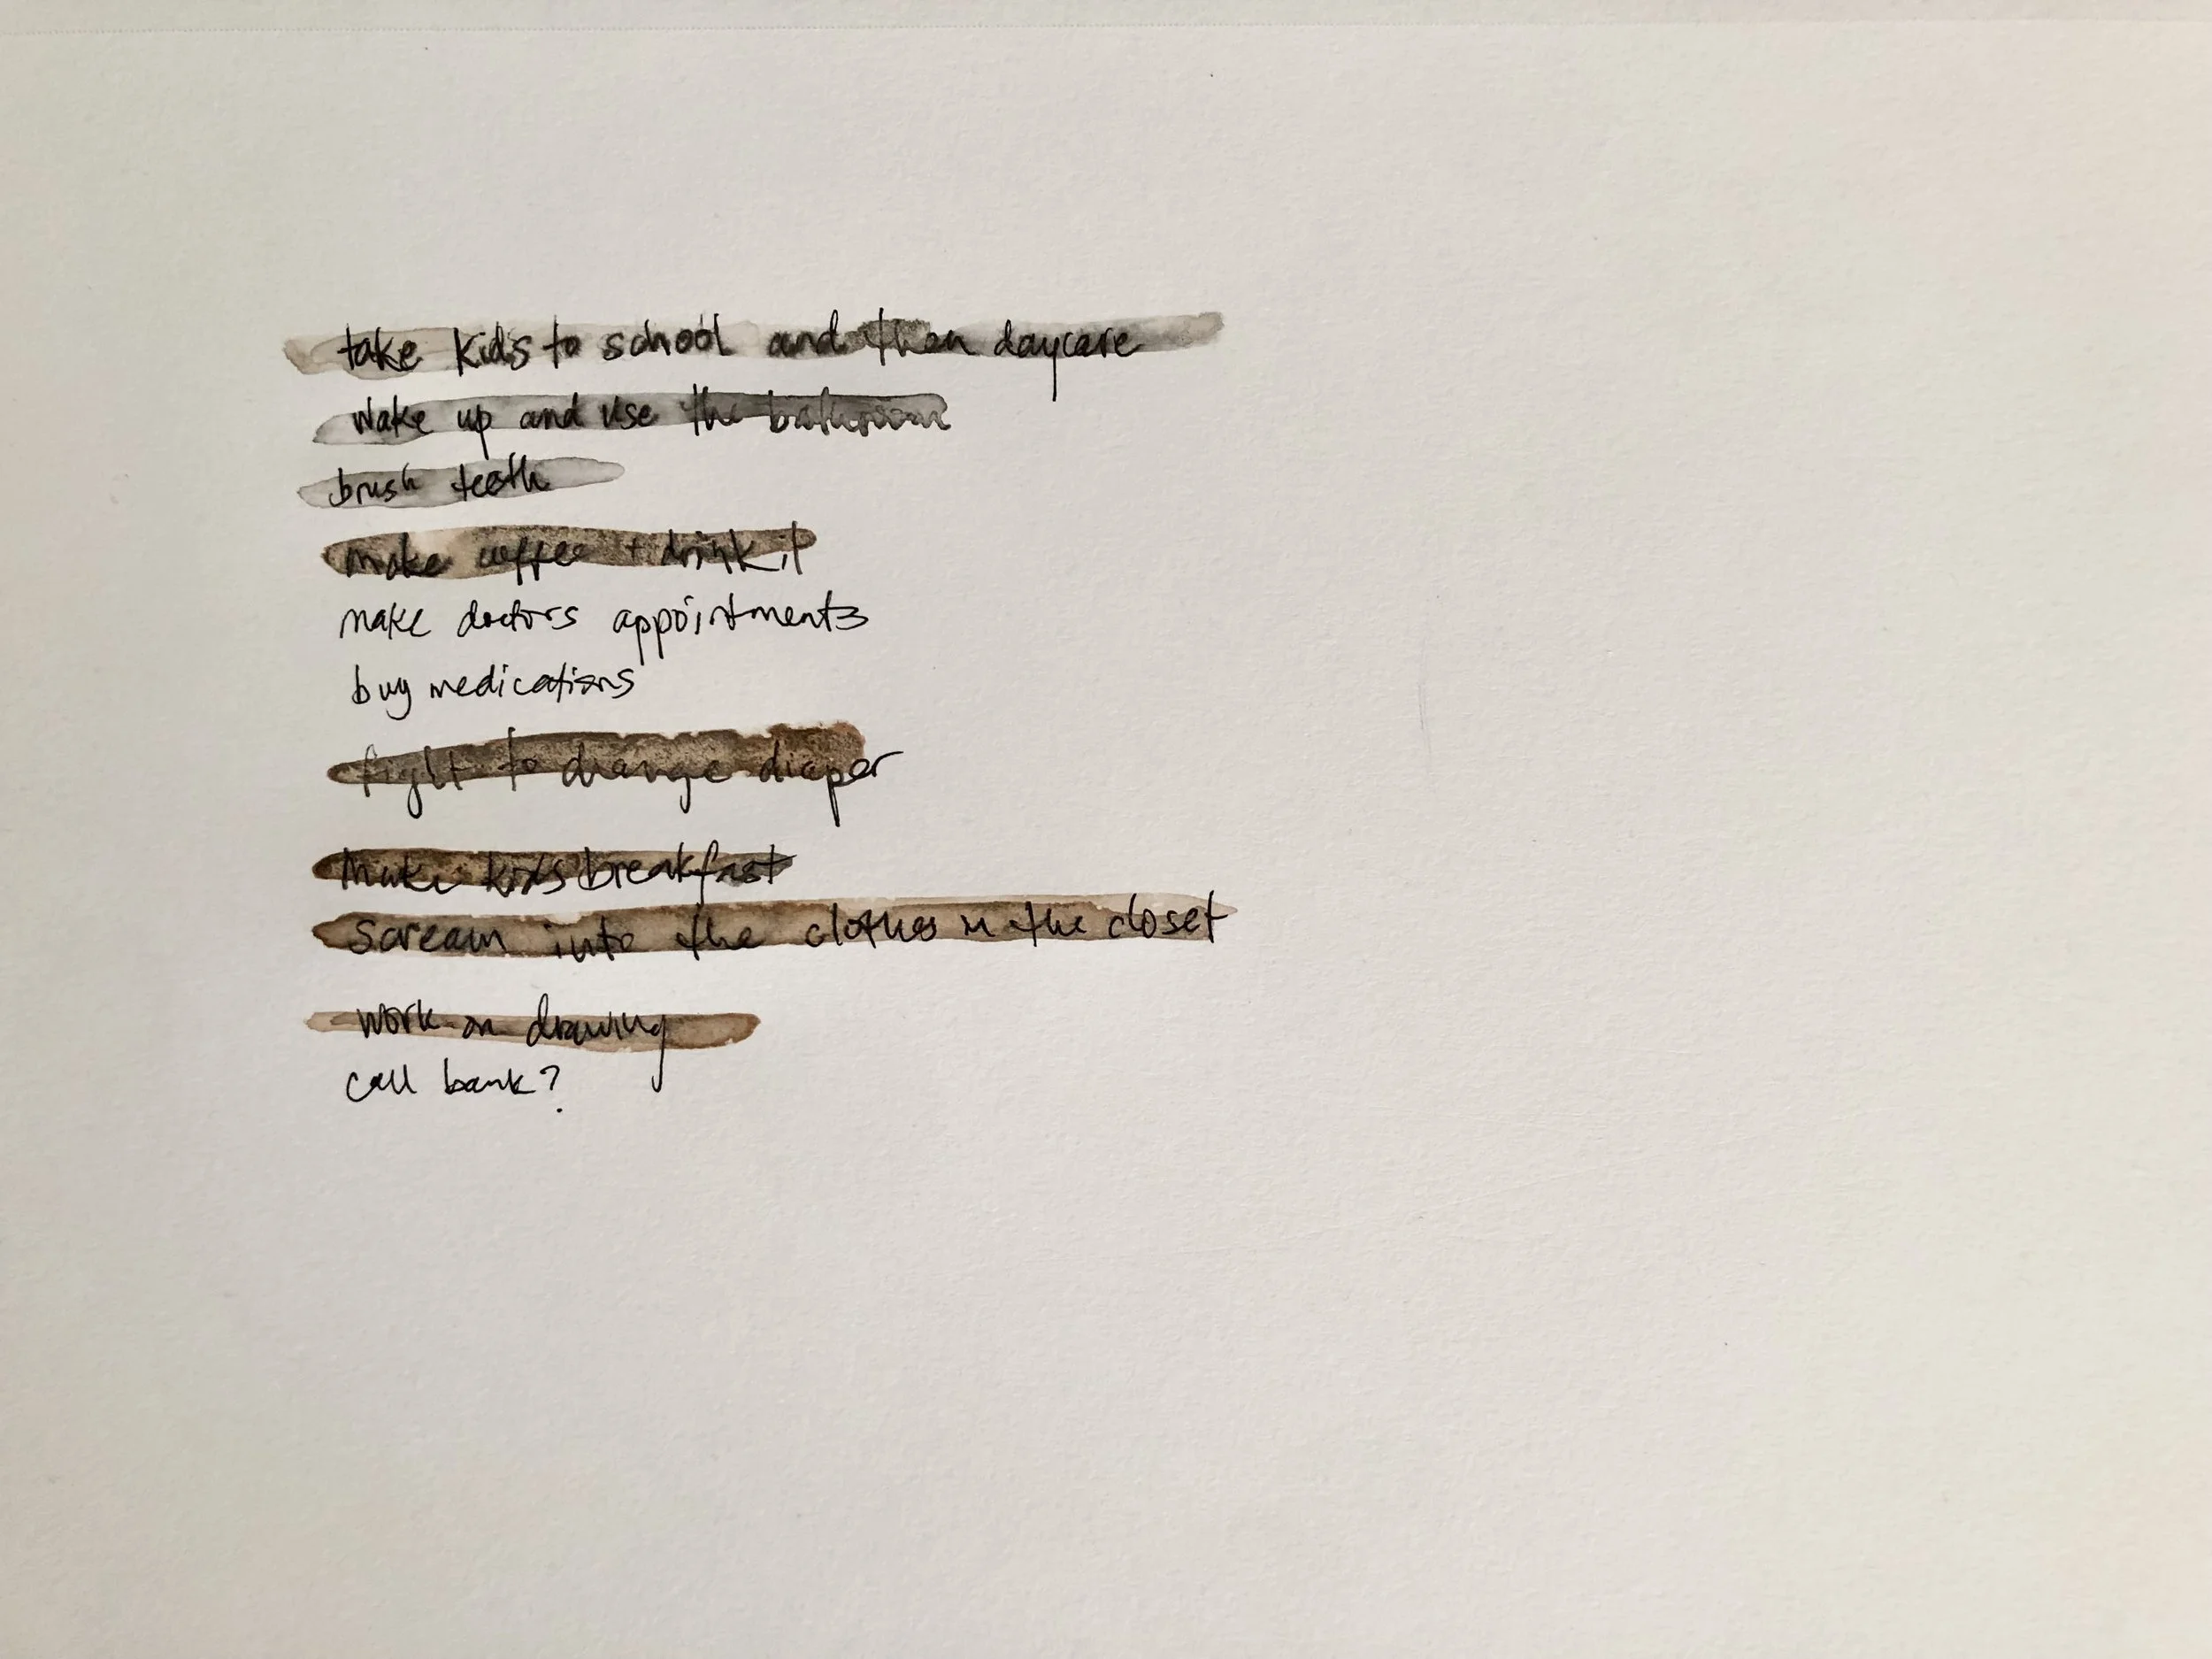 take kids to school and then daycare
wake up and use the bathroom
brush teeth
make coffee + drink it
make doctors appointments
buy medications
fight to change diaper
make kids breakfast
scream into the clothes in the closet
work on drawing
call bank?